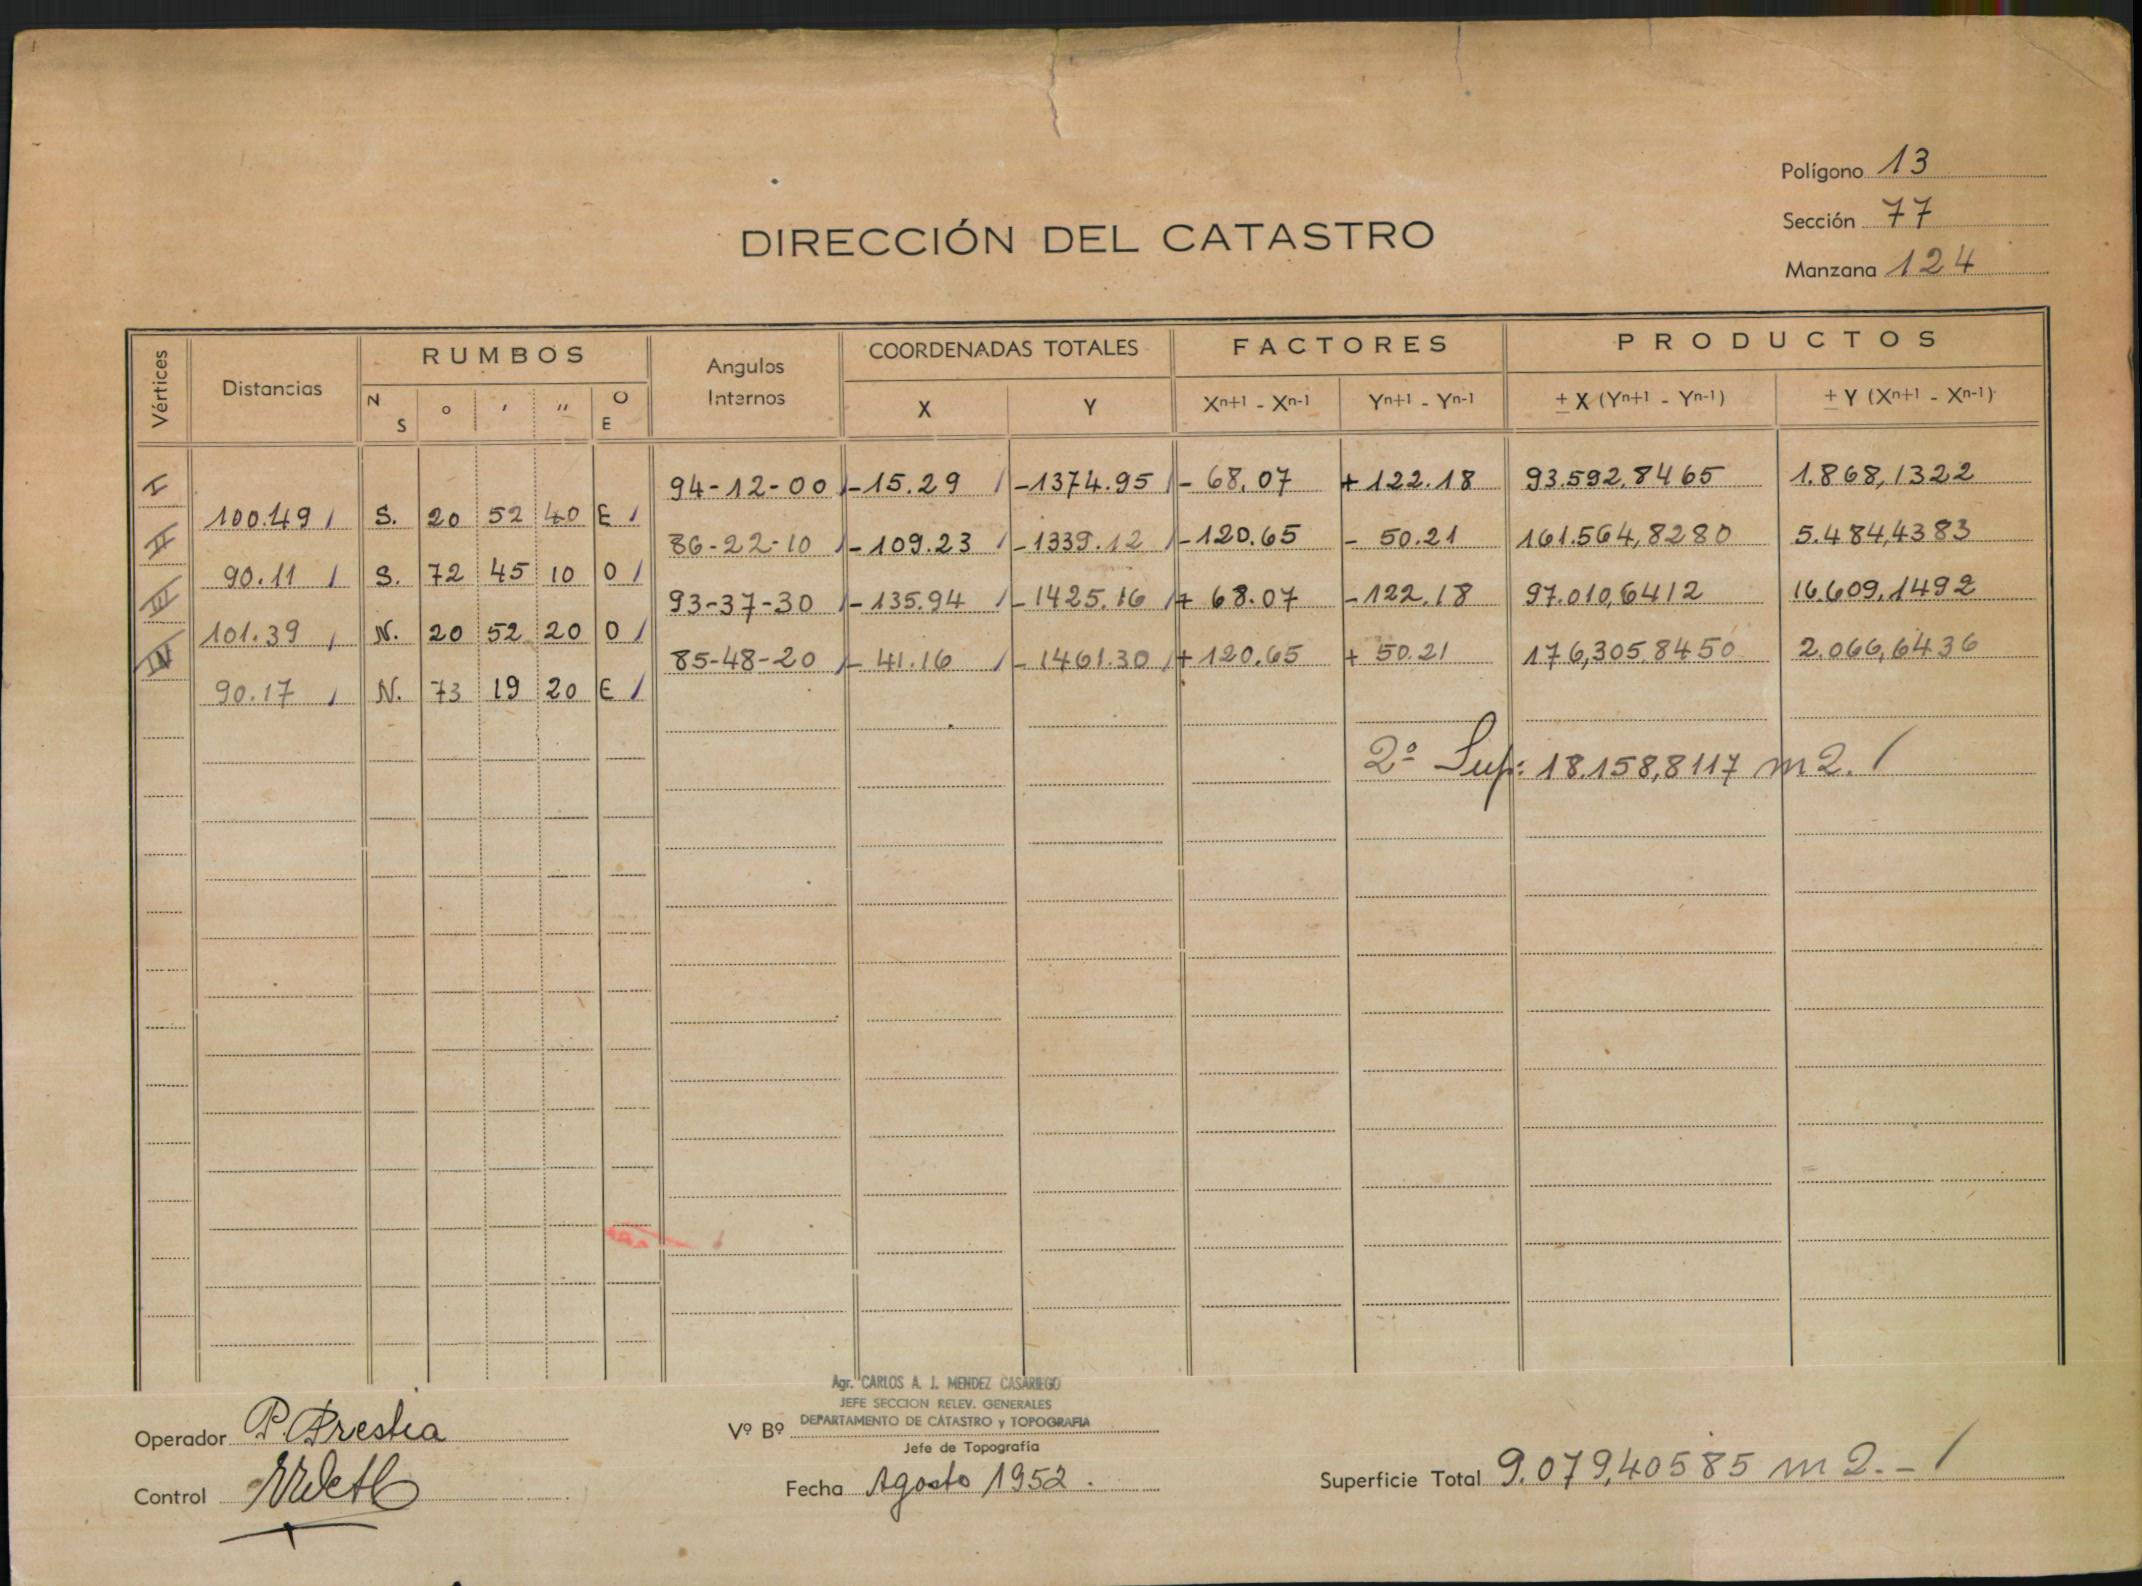 Polígono 13
Sección 77
Manzana 124
DIRECCIÓN DEL CATASTRO
Vértices Distancias RUMBOS Angulos Internos COORDENADAS TOTALES FACTORES PRODUCTOS
N S o ' '' O E X Y Xn+1 - Xn-1 Yn+1 - Yn-1 ± X (Yn+1 - Yn-1) ± Y (Xn+1 - Xn-1)
I 94-12-00 -15.29 -1374.95 - 68.07 +122.18 93.592,8465 1.868,1322
100.49 S. 20 52 40 E
II 86-22-10 -109.23 -1339.12 -120.65 - 50.21 161.564,8280 5.484,4383
90.11 S. 72 45 10 O
III 93-37-30 -135.94 -1425.16 + 68.07 -122.18 97.010,6412 16.609,1492
101.39 N. 20 52 20 O
IV 85-48-20 - 41.16 -1461.30 +120.65 + 50.21 176,305,8450 2.066,6436
90.17 N. 73 19 20 E
2º Sup: 18.158,8117 m2.
Agr. CARLOS A. J. MENDEZ CASARIEGO
JEFE SECCION RELEV. GENERALES
DEPARTAMENTO DE CATASTRO y TOPOGRAFIA
Operador P. Prestia
Vº Bº
Jefe de Topografía
Control
Fecha Agosto 1952.
Superficie Total 9.079,40585 m2.-